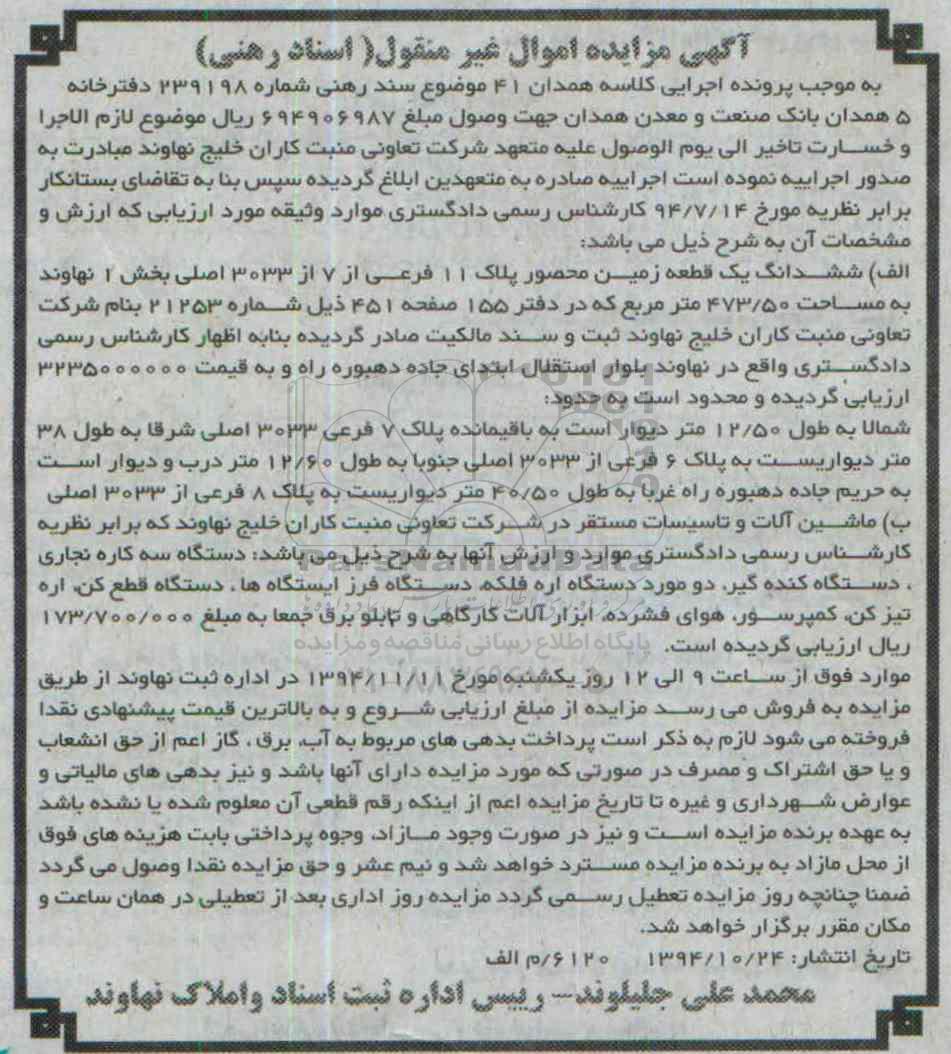 آگهی مزایده اموال غیر منقول( اسناد رهنی)
به موجب پرونده اجرایی کلاسه همدان ۴۱ موضوع سند رهنی شماره ۲۳۹۱۹۸ دفترخانه
۵ همدان بانک صنعت و معدن همدان جهت وصول مبلغ ۶۹۴۹۰۶۹۸۷ ریال موضوع لازم الاجرا
و خسارت تاخیر الی یوم الوصول علیه متعهد شرکت تعاونی منبت کاران خلیج نهاوند مبادرت به
صدور اجراییه نموده است اجراییه صادره به متعهدین ابلاغ گردیده سپس بنا به تقاضای بستانکار
برابر نظریه مورخ ۹۴/۷/۱۴ کارشناس رسمی دادگستری موارد وثیقه مورد ارزیابی که ارزش و
مشخصات آن به شرح ذیل می باشد:
الف) ششدانگ یک قطعه زمین محصور پلاک ۱۱ فرعی از ۷ از ۳۰۳۳ اصلی بخش ۱ نهاوند
به مساحت ۴۷۳/۵۰ متر مربع که در دفتر ۱۵۵ صفحه ۴۵۱ ذیل شماره ۲۱۲۵۳ بنام شرکت
تعاونی منبت کاران خلیج نهاوند ثبت و سند مالکیت صادر گردیده بنابه اظهار کارشناس رسمی
دادگستری واقع در نهاوند بلوار استقلال ابتدای جاده دهبوره راه و به قیمت ۳۲۳۵۰۰۰۰۰۰
ارزیابی گردیده و محدود است به حدود:
شمالا به طول ۱۲/۵۰ متر دیوار است به باقیمانده پلاک ۷ فرعی ۳۰۳۳ اصلی شرقا به طول ۳۸
متر دیواریست به پلاک ۶ فرعی از ۳۰۳۳ اصلی جنوبا به طول ۱۲/۶۰ متر درب و دیوار است
به حریم جاده دهبوره راه غربا به طول ۴۰/۵۰ متر دیواریست به پلاک ۸ فرعی از ۳۰۳۳ اصلی
ب) ماشین آلات و تاسیسات مستقر در شرکت تعاونی منبت کاران خلیج نهاوند که برابر نظریه
کارشناس رسمی دادگستری موارد و ارزش آنها به شرح ذیل می باشد: دستگاه سه کاره نجاری
، دستگاه کنده گیر، دو مورد دستگاه اره فلکه، دستگاه فرز ایستگاه ها ، دستگاه قطع کن، اره
تیز کن، کمپرسور، هوای فشرده، ابزار آلات کارگاهی و تابلو برق جمعا به مبلغ ۱۷۳/۷۰۰/۰۰۰
ریال ارزیابی گردیده است.
موارد فوق از ساعت ۹ الی ۱۲ روز یکشنبه مورخ ۱۳۹۴/۱۱/۱۱ در اداره ثبت نهاوند از طریق
مزایده به فروش می رسد مزایده از مبلغ ارزیابی شروع و به بالاترین قیمت پیشنهادی نقدا
فروخته می شود لازم به ذکر است پرداخت بدهی های مربوط به آب، برق ، گاز اعم از حق انشعاب
و یا حق اشتراک و مصرف در صورتی که مورد مزایده دارای آنها باشد و نیز بدهی های مالیاتی و
عوارض شهرداری و غیره تا تاریخ مزایده اعم از اینکه رقم قطعی آن معلوم شده یا نشده باشد
به عهده برنده مزایده است و نیز در صورت وجود مازاد، وجوه پرداختی بابت هزینه های فوق
از محل مازاد به برنده مزایده مسترد خواهد شد و نیم عشر و حق مزایده نقدا وصول می گردد
ضمنا چنانچه روز مزایده تعطیل رسمی گردد مزایده روز اداری بعد از تعطیلی در همان ساعت و
مکان مقرر برگزار خواهد شد.
تاریخ انتشار: ۱۳۹۴/۱۰/۲۴ ۶۱۲۰/م الف
محمد علی جلیلوند– رییس اداره ثبت اسناد واملاک نهاوند
ParsNamadData
پایگاه اطلاع رسانی مناقصه و مزایده